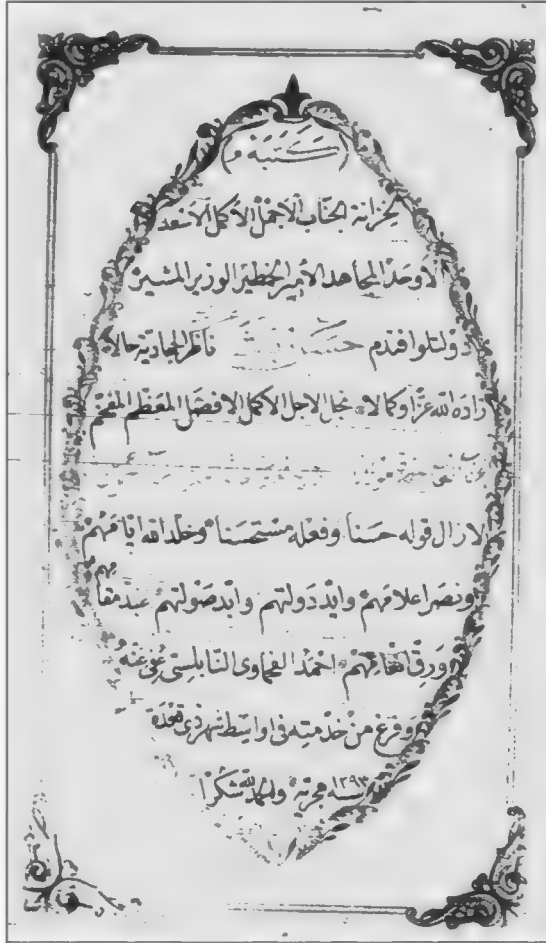 كتبه م
لخزانة الجناب الاجمل الاكمل الاسعد
الاوحد المجاهد الأمير الخطير الوزير المشير
دولتلو افندم حسن باشا ناظر الجهادية حالا
زاده الله عزا وكمالا نجل الاجل الاكمل الافضل المعظم المفخم
لازال قوله حسنا وفعله مستحسنا وخلد الله ايامهم
ونصر اعلامهم وايد دولتهم وابد صولتهم عبد مقامهم
ورق انعامهم احمد الفحماوى النابلسى عفى عنه
وفرغ من خدمته فى اواسط شهر ذى قعدة
سنه ١٢٩٣ هجرية ولله الحمد شكرا